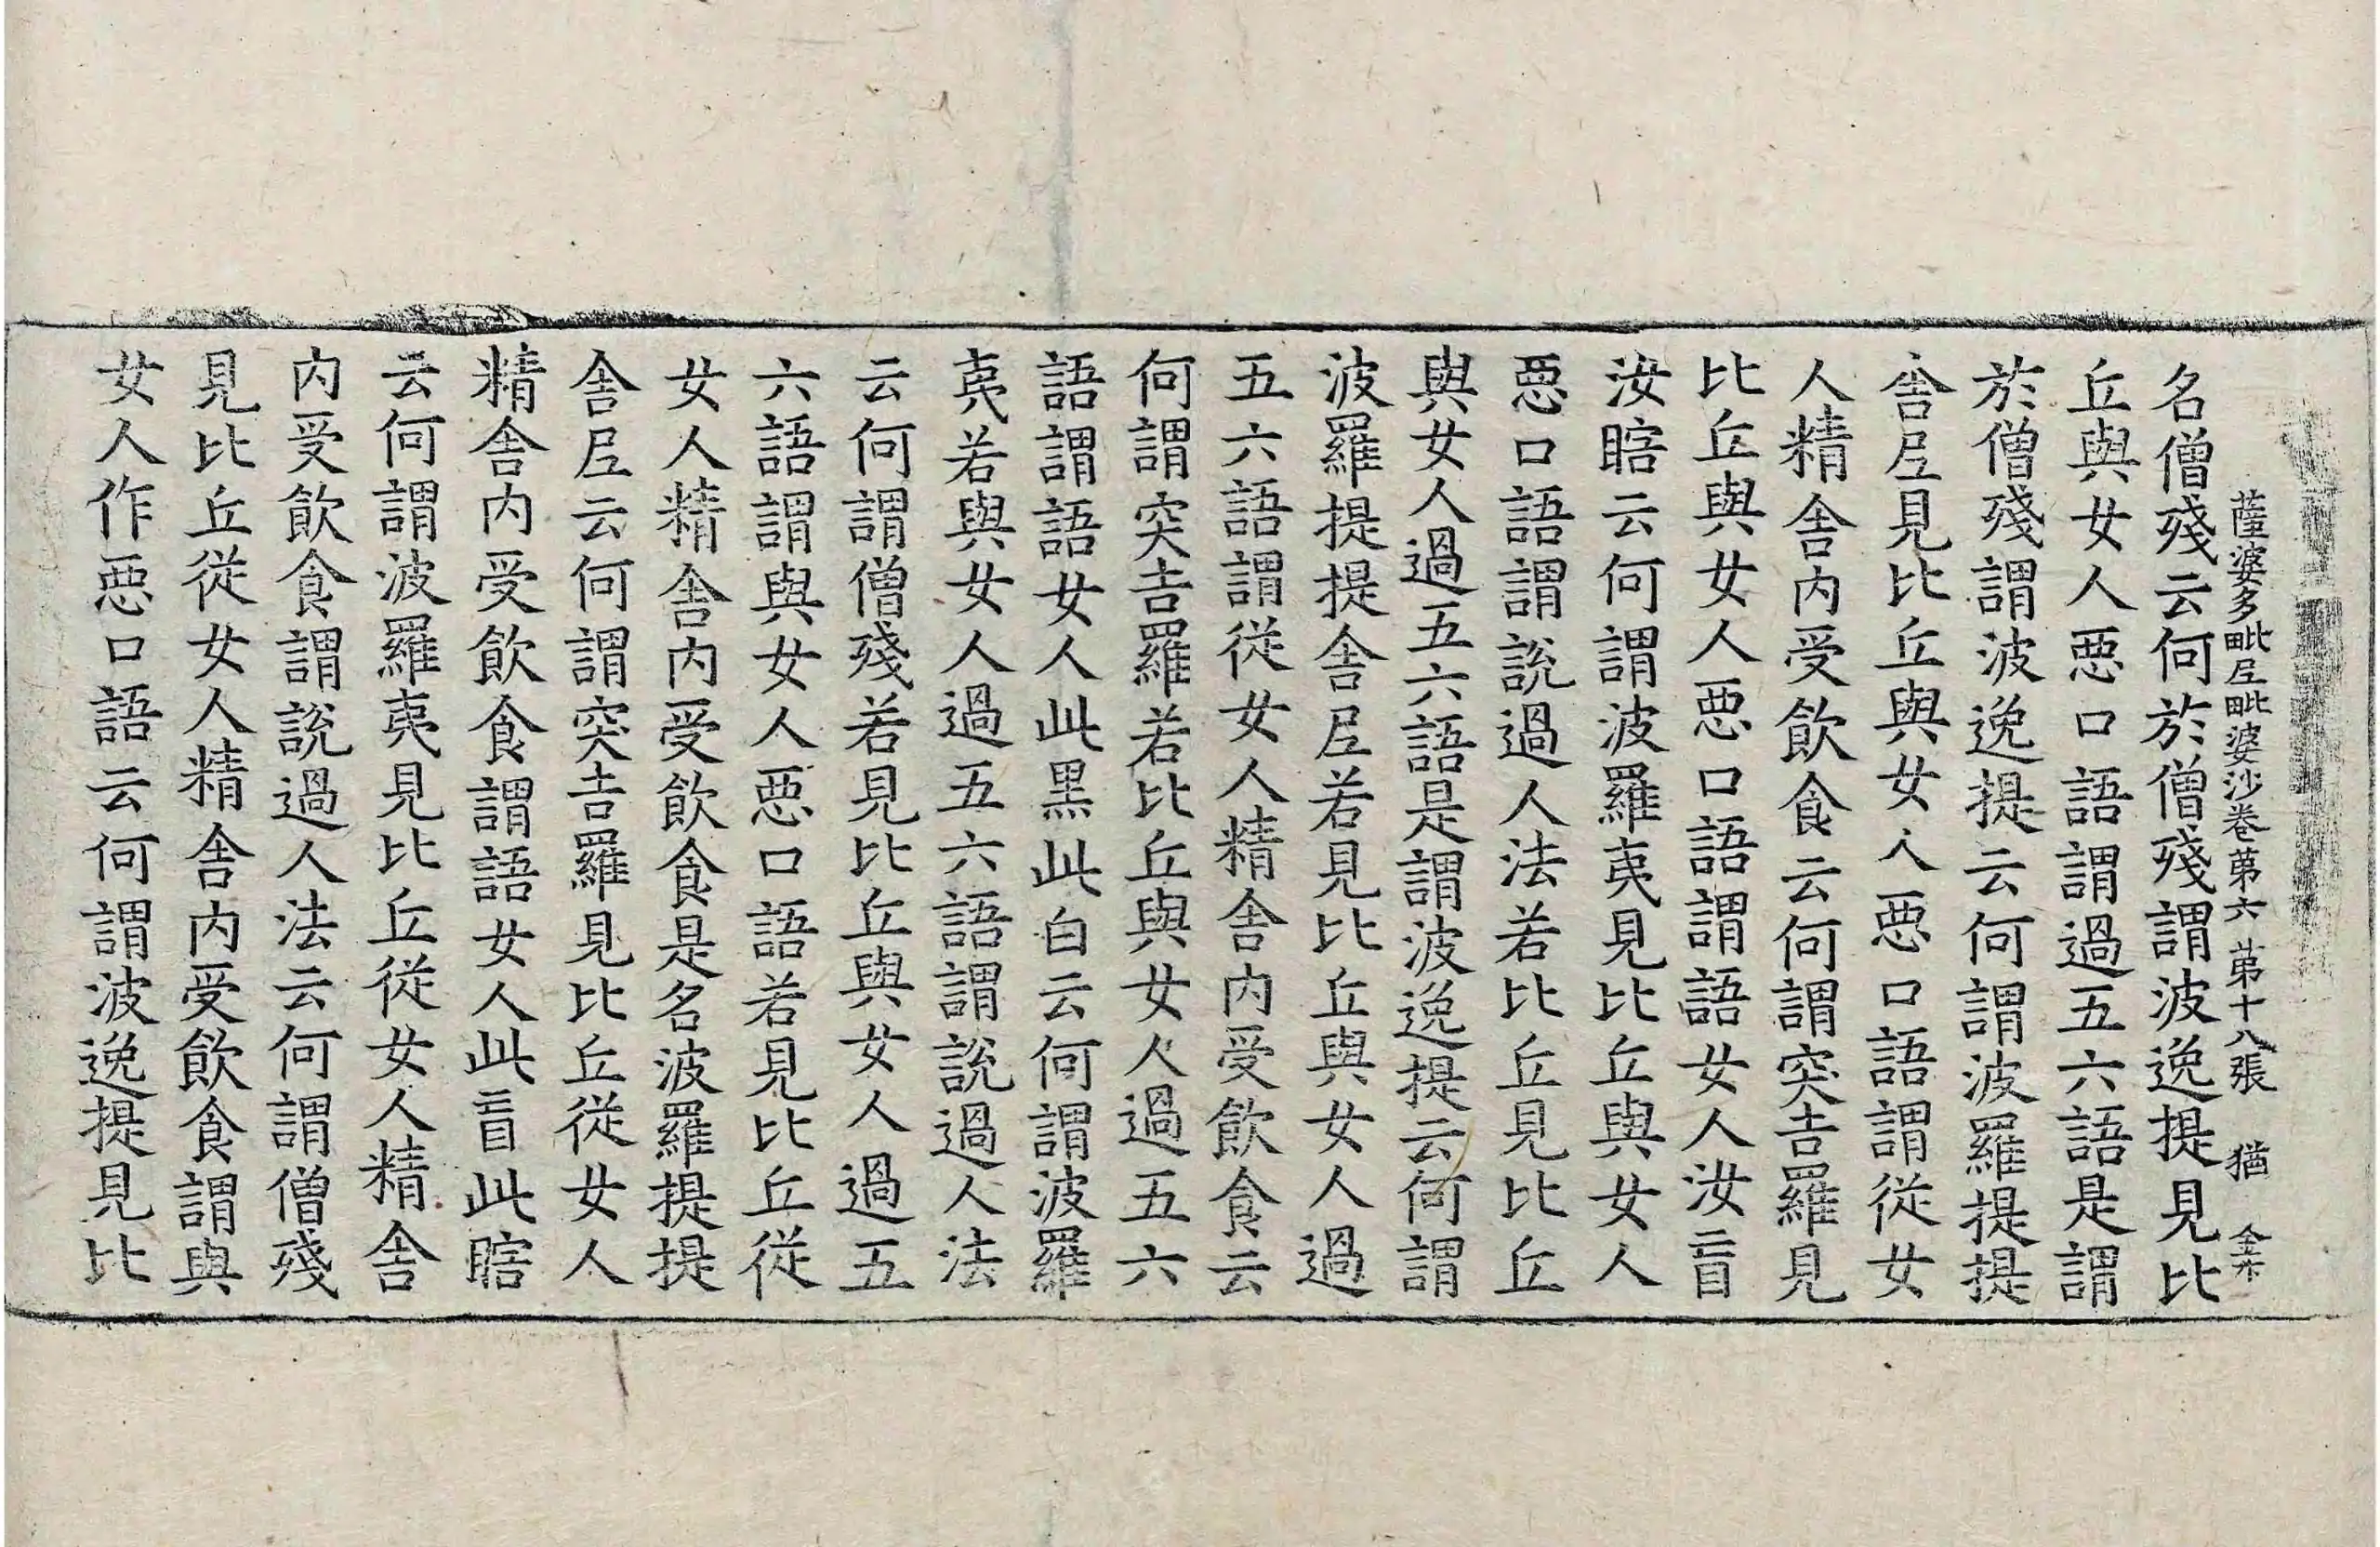 薩婆多毗尼毗婆沙卷第六 第十八張 猶
名僧殘云何於僧殘謂波逸提見比
丘與女人惡口語謂過五六語是謂
於僧殘謂波逸提云何謂波羅提提
舍尼見比丘與女人惡口語謂從女
人精舍內受飲食云何謂突吉羅見
比丘與女人惡口語謂語女人汝盲
汝瞎云何謂波羅夷見比丘與女人
惡口語謂說過人法若比丘見比丘
與女人過五六語是謂波逸提云何謂
波羅提提舍尼若見比丘與女人過
五六語謂從女人精舍內受飲食云
何謂突吉羅若比丘與女人過五六
語謂語女人此黑此白云何謂波羅
夷若與女人過五六語謂說過人法
云何謂僧殘若見比丘與女人過五
六語謂與女人惡口語若見比丘從
女人精舍內受飲食是名波羅提提
舍尼云何謂突吉羅見比丘從女人
精舍內受飲食謂語女人此盲此瞎
云何謂波羅夷見比丘從女人精舍
內受飲食謂說過人法云何謂僧殘
見比丘從女人精舍內受飲食謂與
女人作惡口語云何謂波逸提見比